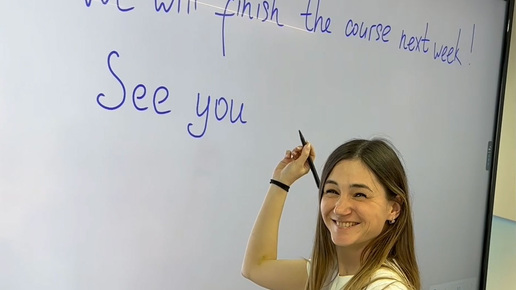 We will finish the course next week!
See you